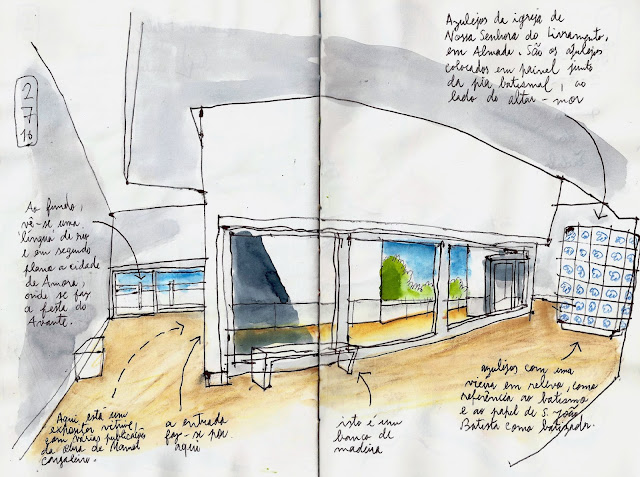 Azulejos da igreja de
Nossa Senhora do Livramento,
em Almada. São os azulejos
colocados em painel junto
da pia batismal, ao
lado do altar-mor
2
7
16
Ao fundo,
vê-se uma
língua de rio
e em segundo
plano a cidade
de Amora,
onde se faz
a festa do
Avante.
Aqui está um
expositor
com várias publicações
da obra de Manuel
Cargaleiro.
a entrada
faz-se por
aqui
isto é um
banco de
madeira
azulejos com uma
vieira em relevo, como
referência ao batismo
e ao papel de S. João
Batista como batizador.